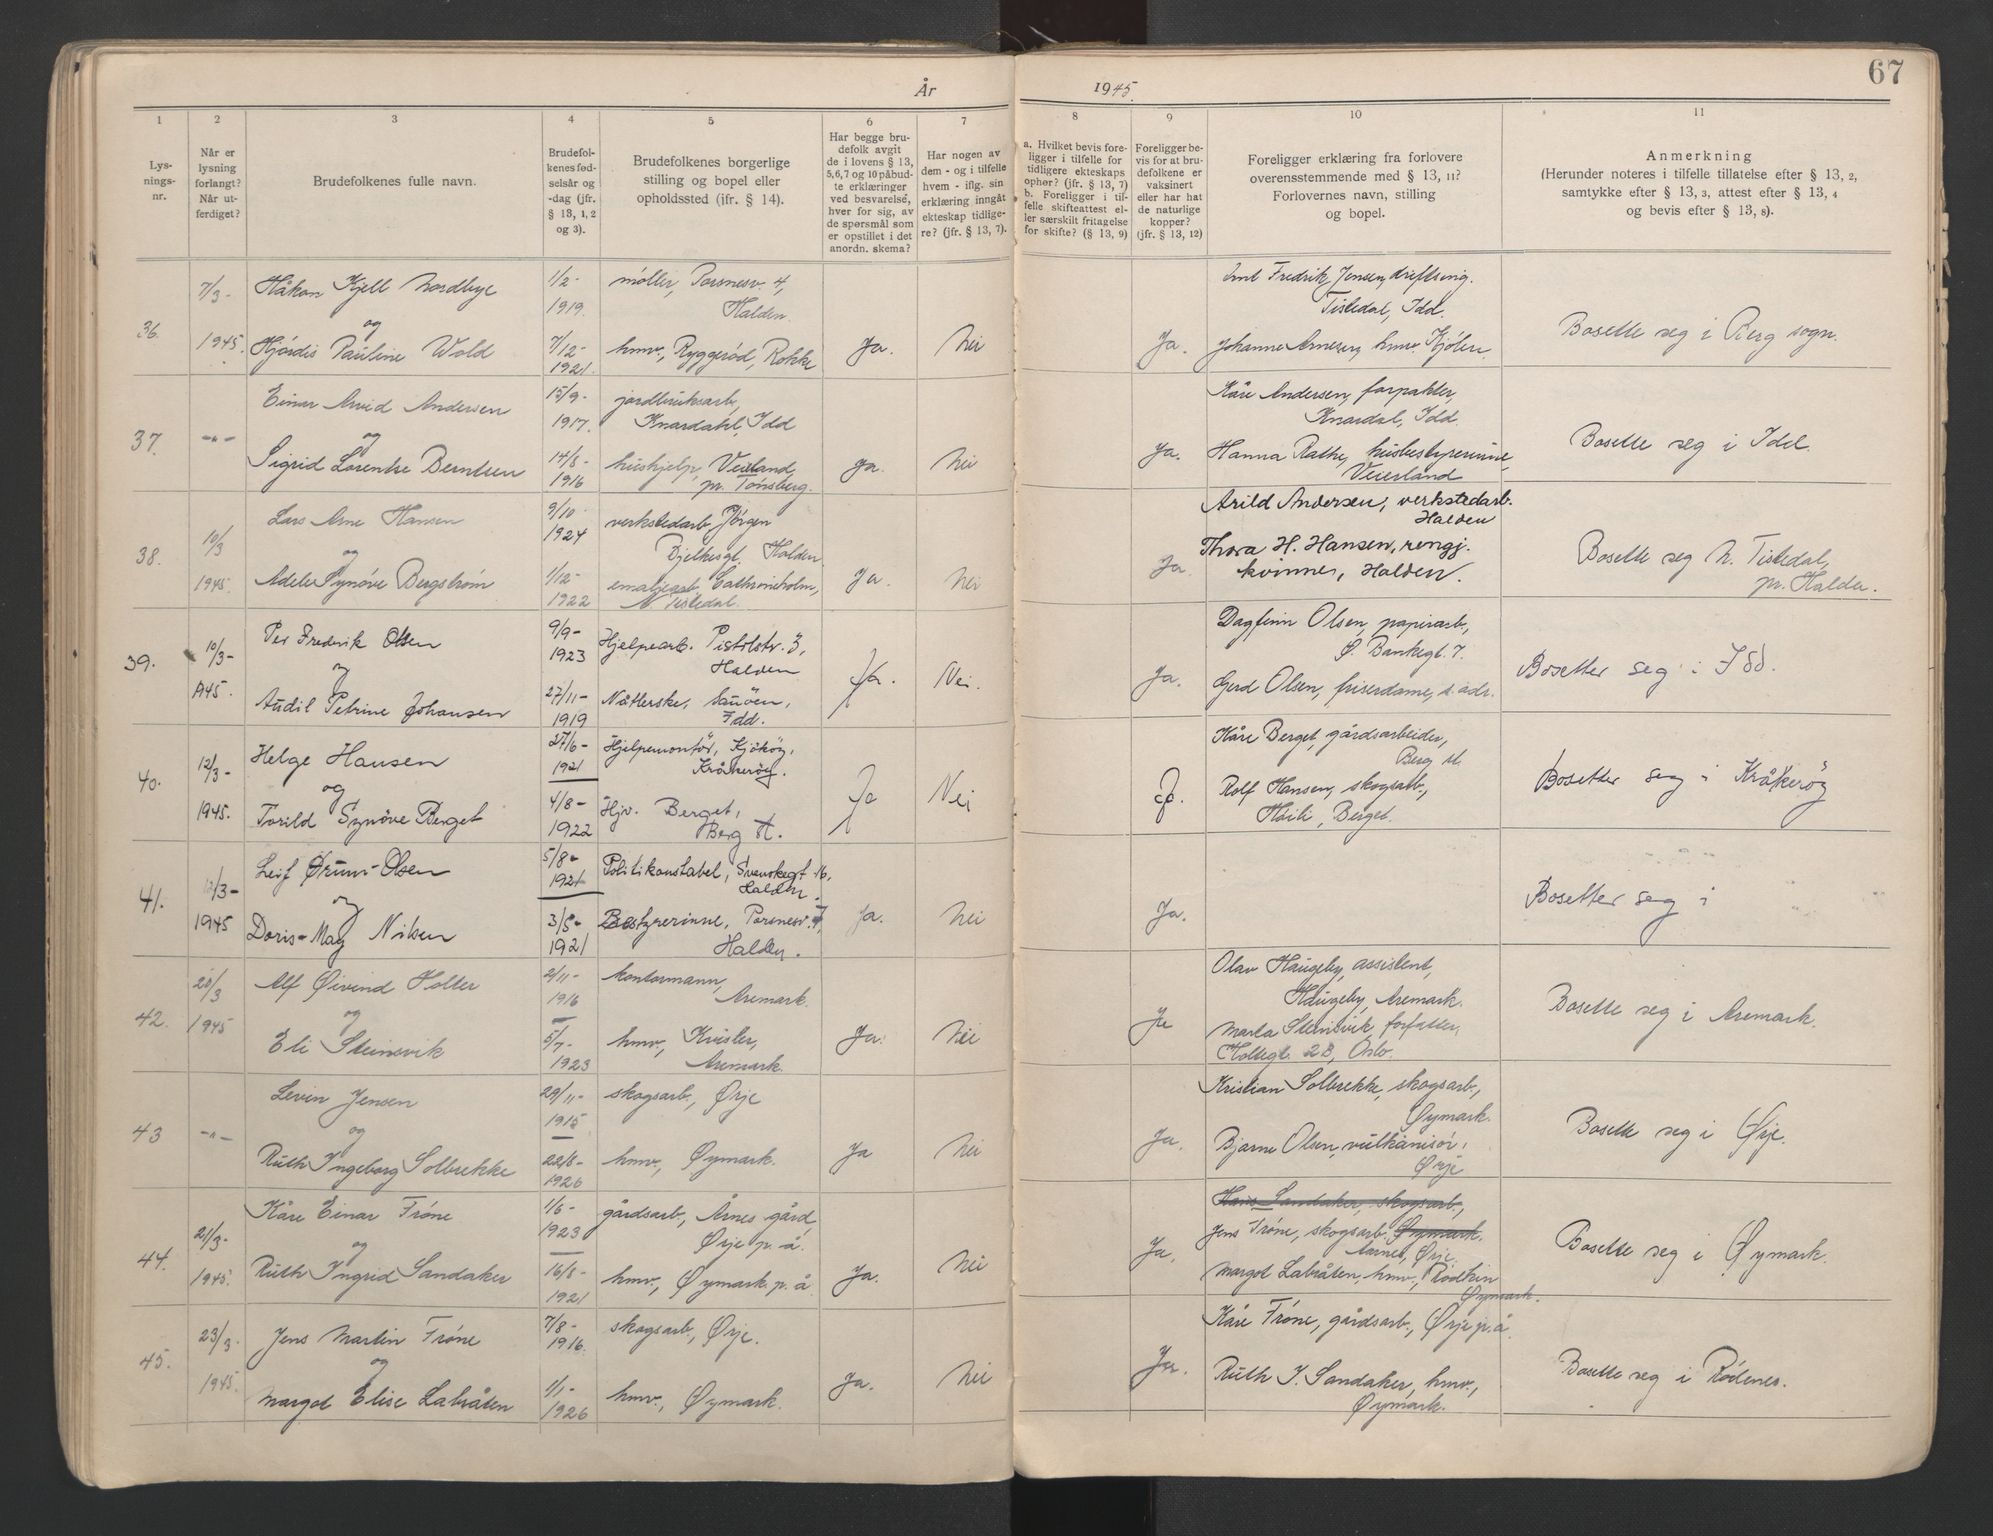 67
År 1945.
1 2 3 4 5 6 7 8 9 10 11
Lys-
nings-
nr.
Når er
lysning
forlangt?
Når ut-
ferdiget?
Brudefolkenes fulle navn.
Brudefol-
kenes fød-
selsår og
-dag (jfr.
§ 13, 1, 2
og 3).
Brudefolkenes borgerlige
stilling og bopel eller
opholdssted (jfr. § 14).
Har begge bru-
defolk avgit
de i lovens § 13,
5, 6, 7 og 10 påbud-
te erklæringer
ved besvarelse,
hver for sig, av
de spørsmål som
er opstillet i det
anordn. skema?
Har nogen av
dem - og i tilfelle
hvem - iflg. sin
erklæring inngåt
ekteskap tidlige-
re? (jfr. § 13, 7).
a. Hvilket bevis fore-
ligger i tilfelle for
tidligere ekteskaps
ophør? (jfr. § 13, 7)
b. Foreligger i til-
felle skifteattest el-
ler særskilt fritagelse
for skifte? (§ 13, 9)
Foreligger be-
vis for at bru-
defolkene er
vaksinert
eller har hat
de naturlige
kopper?
(jfr. § 13, 12)
Foreligger erklæring fra forlovere
overensstemmende med § 13, 11?
Forlovernes navn, stilling
og bopel.
Anmerkning
(Herunder noteres i tilfelle tillatelse efter § 13, 2,
samtykke efter § 13, 3, attest efter § 13, 4
og bevis efter § 13, 8).
36.
7/3-
1945.
Håkon Kjell Nordbye
og
Hjørdis Pauline Wold
1/2-
1919.
7/12-
1921.
møller, Porsnesv. 4,
Halden.
hmv., Ryggerød, Rokke
Ja.
Nei
Ja.
Fredrik Jensen, driftsing.
Tistedal, Idd.
Johanne Arnesen, hmv. Kjølen.
Bosette seg i Berg sogn.
37.
-"-
Einar Arvid Andersen
og
Sigrid Lorentse Berntsen
15/9-
1917.
14/8-
1916
jordbruksarb.,
Knardahl, Idd
hushjelp, Veierland,
pr. Tønsberg.
Ja.
Nei
Ja.
Kåre Andersen, forpakter,
Knardal, Idd.
Hanna Rathe, husbestyrerinne,
Veierland
Bosette seg i Idd.
38.
10/3
1945.
Lars Arne Hansen
og
Adele Synøve Bergstrøm
9/10-
1924
1/12-
1922
verkstedarb., Jørgen
Bjelkesgt. Halden.
emaljearb. Cathrineholm,
N. Tistedal.
Ja.
Nei
Ja
Arild Andersen, verkstedarb.
Halden
Thora H. Hansen, rengj.
kvinne, Halden.
Bosette seg N. Tistedal,
pr. Halden.
39.
10/3-
1945.
Per Frederik Olsen
og
Audil Petrine Johansen
9/9-
1923
27/11-
1919
Hjelpearb. Pistolstr. 3,
Halden
Nåtlerske, Sauøen,
Idd.
Ja.
Nei.
Ja.
Dagfinn Olsen, papirarb.,
Ø. Bankegt. 7.
Gerd Olsen, friserdame, s. adr.
Bosetter seg i Idd.
40.
12/3-
1945.
Helge Hansen
og
Torild Synøve Berget
27/6-
1921
4/8-
1922
Hjelpemontör, Kjökög,
Kråkeröy.
Hjv. Berget,
Berg H.
Ja
Nei
Ja.
Kåre Berget, gårdsarbeider,
Berg H.
Rolf Hansen, skogsarb.,
Berget.
Bosetter seg i Kråkeröy
41.
12/3-
1945
Leif Ørum-Olsen
og
Doris-May Nilsen
5/8-
1921
3/5-
1921
Politikonstabel, Svenskegt 16,
Halden.
Bestyrerinne, Porsnesv. 7,
Halden.
Ja.
Nei
Ja.
Bosetter seg i
42.
20/3
1945
Alf Øivind Holter
og
Eli Steinsvik
2/11-
1916
5/7-
1923
kontormann,
Aremark.
hmv.,
Aremark.
Ja.
Nei
Ja
Olav Haugeby, assistent,
Haugeby, Aremark.
Marta Steinsvik, forfatter,
Holtegt. 28, Oslo.
Bosette seg i Aremark.
43
-"-
Levin Jensen
og
Ruth Ingeborg Solbrekke
29/11-
1915
22/8-
1926
skogsarb., Ørje
hmv., Øymark.
Ja
Nei
Ja.
Kristian Solbrekke, skogsarb.,
Øymark.
Bjarne Olsen, vulkanisør,
Ørje
Bosette seg i Ørje.
44.
21/3-
1945.
Kåre Einar Trøne
og
Ruth Ingrid Sandaker
1/6-
1923
16/8-
1921
gårdsarb., Årnes gård,
Ørje p. å.
hmv., Øymark p. å
Ja.
Nei
Ja.
Hans Sandaker, skogsarb.,
Jens Trøne, skogsarb. Øymark.
Aarnes, Ørje
Margot Labråten, hmv.,
Øymark.
Bosette seg i Øymark.
45.
23/3-
1945.
Jens Martin Trøne
og
Margot Elise Labråten
7/8-
1916.
1/1-
1926
skogsarb., Ørje.
hmv., Øymark.
Ja.
Nei
Ja.
Kåre Trøne, gårdsarb., Ørje p. å
Ruth I. Sandaker, hmv.,
Øymark.
Bosette seg i Rødenes.